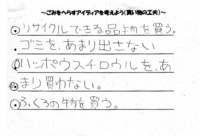 ～ごみをへらすアイディアを考えよう(買い物の工夫)～
◎リサイクルできる品物を買う。
ゴミを、あまり出さない
◎ハッポウスチロウルを、あ
まり買わない。
◎ふくろの物を買う。